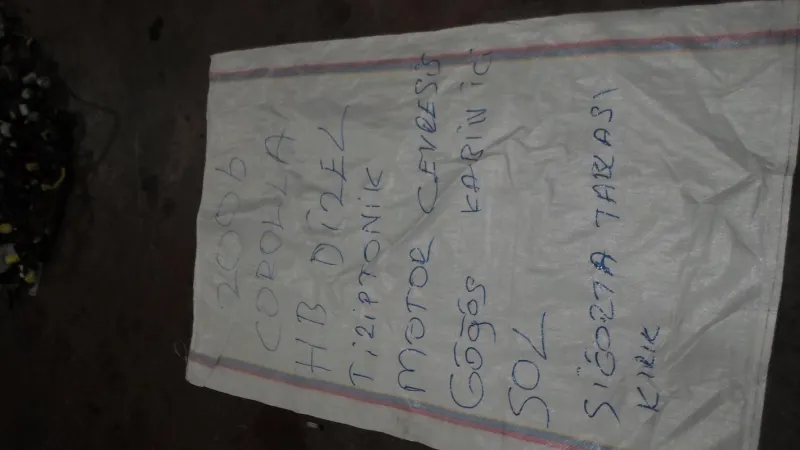 2006
COROLLA
HB DİZEL
TİRİPTONİK
MOTOR ÇEVRESİ
GÖĞÜS KABİN İÇİ
SOL
SİĞORTA TABLASI
KIRIK